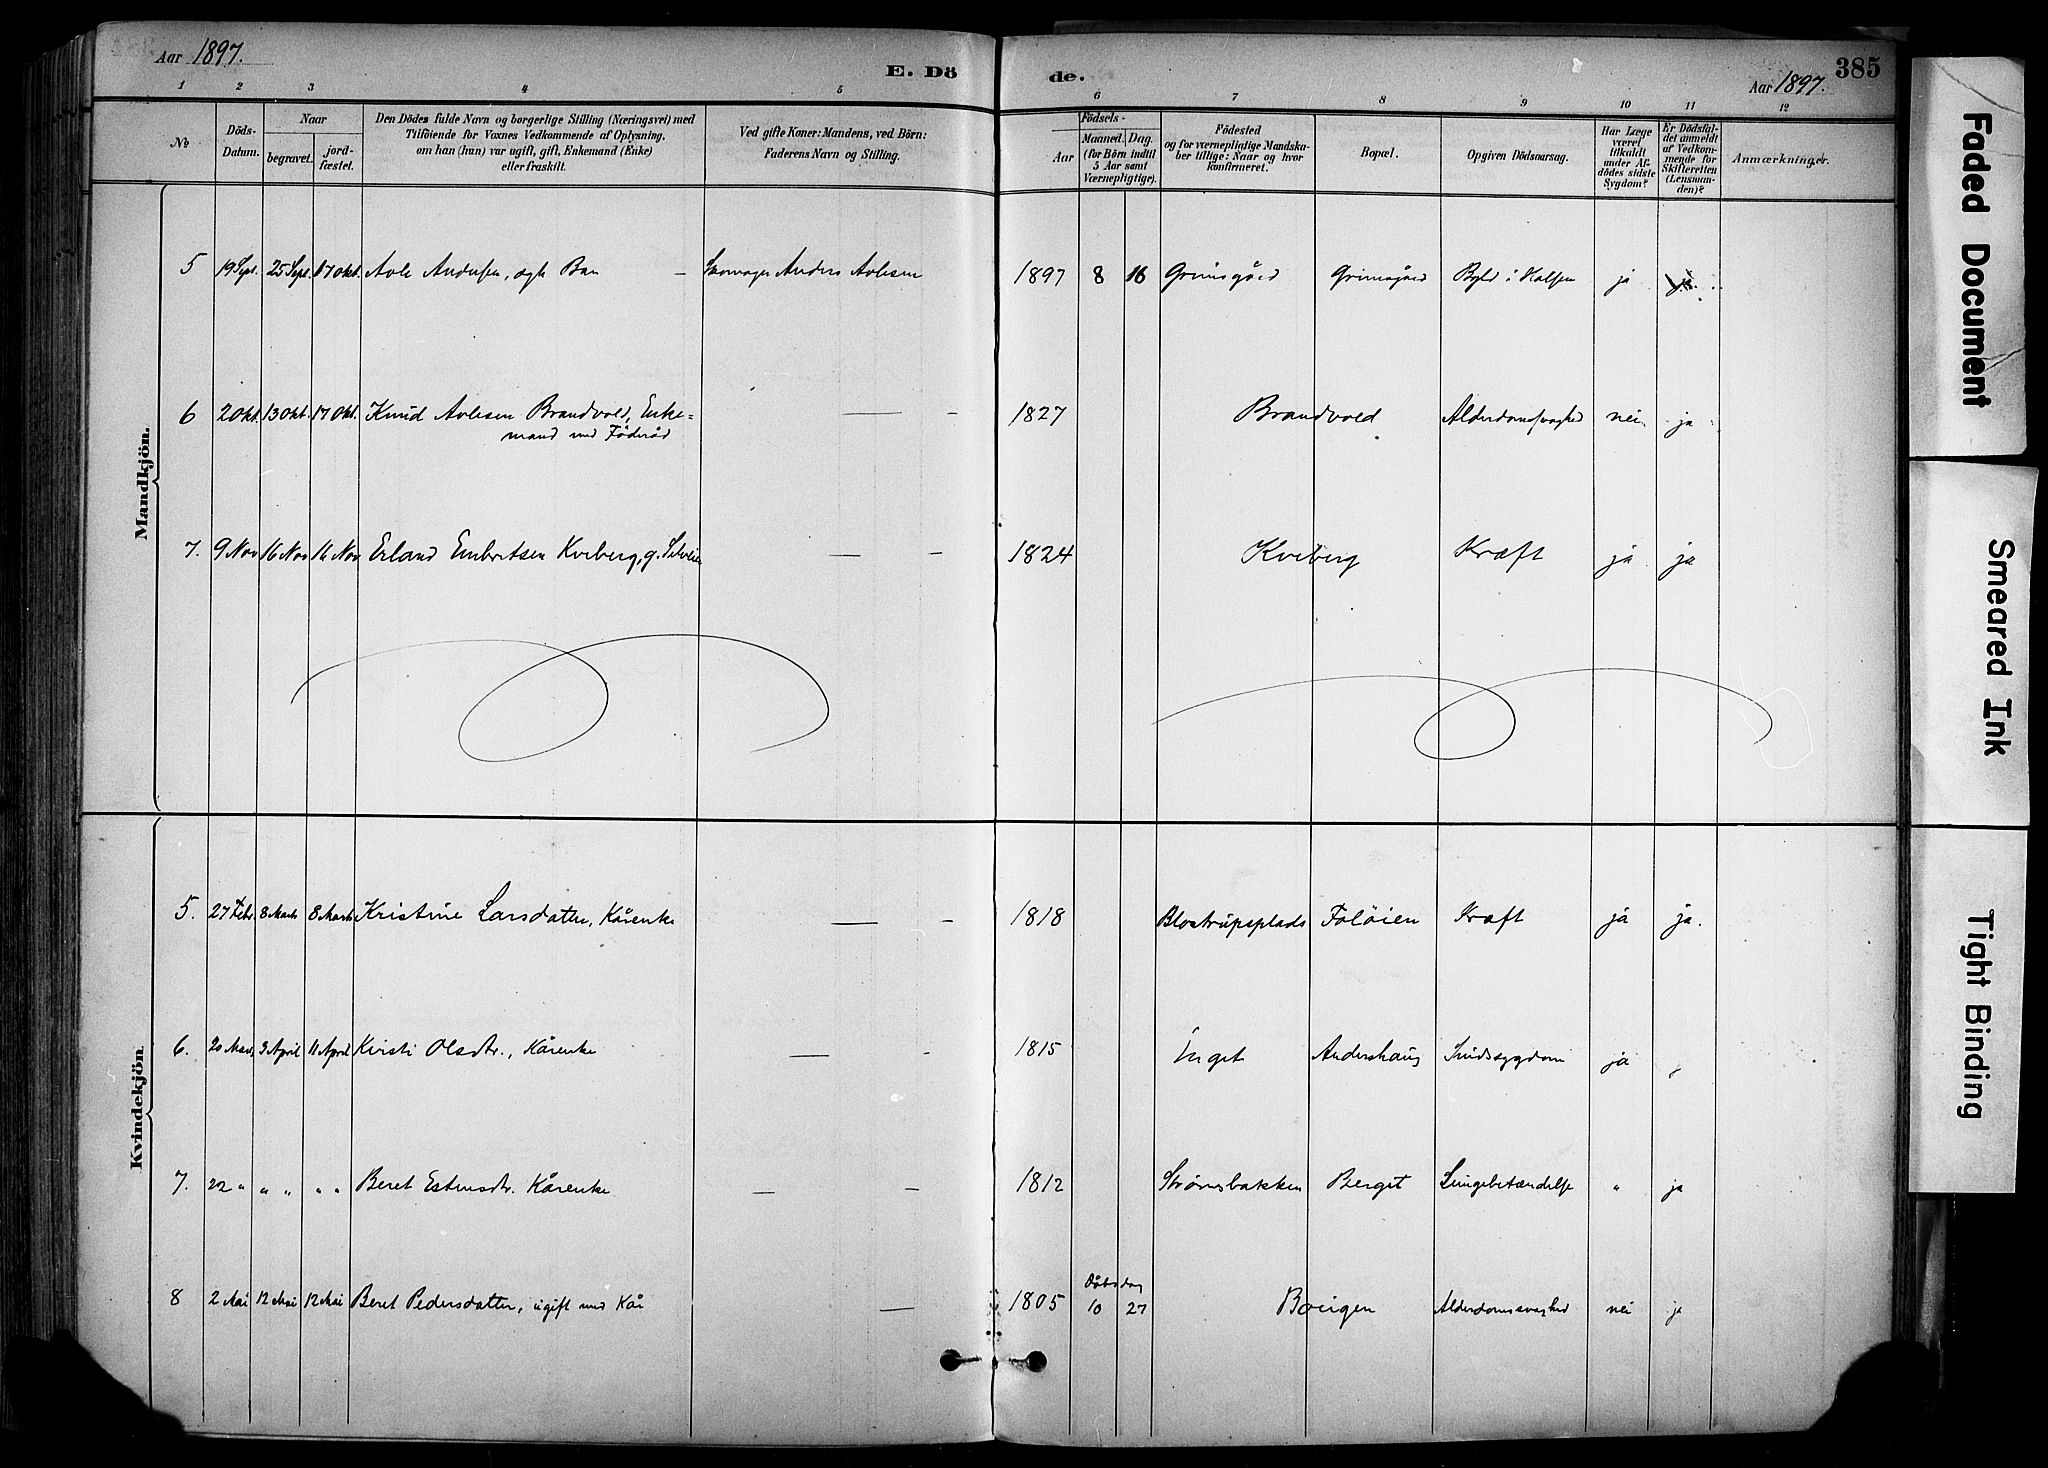 Aar 1897.
E. Dö
de.
Aar 1897.
385
1 2 3 4 5 6 7 8 9 10 11 12
No
Döds-Datum.
Naar
begravet.
jord-fæstet.
Den Dödes fulde Navn og borgerlige Stilling (Næringsvei) med
Tilföiende for Voxnes Vedkommende af Oplysning,
om han (hun) var ugift, gift, Enkemand (Enke)
eller fraskilt.
Ved gifte Koner: Mandens, ved Börn:
Faderens Navn og Stilling.
Födsels-
Aar
Maaned. Dag.
(for Börn indtil
5 Aar samt
Værnepligtige).
Födested
og for værnepligtige Mandska-
ber tillige: Naar og hvor
konfirmeret.
Bopæl.
Opgiven Dödsaarsag.
Har Læge
været
tilkaldt
under Af-
dödes sidste
Sygdom?
Er Dödsfal-
det anmeldt
af Vedkom-
mende for
Skifteretten
(Lensman-
den)?
Anmærkninger.
Mandkjön.
5 19 Sept. 25 Sept. 17 Okt. Avle Andersen, ægte Barn — Anders Avlesen 1897 8 16 Grimsgård Grimsgård Byld i Halsen ja
6 2 Okt. 13 Okt. 17 Okt. Knud Avlesen Brandvold, Enke-
mand med Föderåd — - 1827 Brandvold Alderdomssvaghed nei ja
7. 9 Nov 16 Nov 16 Nov Erland Embretsen Kviberg, g. Selveier — — 1824 Kviberg Kræft ja ja
Kvindekjön
5. 27 Febr. 8 Marts 8 Marts Kristine Larsdatter, Kårenke — - 1818 Blostrupsplads Folöien Kræft ja ja.
6. 20 Mars 3 April 11 April Kirsti Olsdtr., Kårenke — - 1815 Enget Andershaug Sindssygdom ja
7. 22 " " " " " Beret Estensdtr. Kårenke — - 1812 Strömsbakken Berget Lungebetændelse " ja
Dåbsdag
8 2 Mai 12 Mai 12 Mai Beret Pedersdatter, ugift med Kår — 1805 10 27 Alderdomssvaghed nei ja
Faded Document
Smeared Ink
Tight Binding